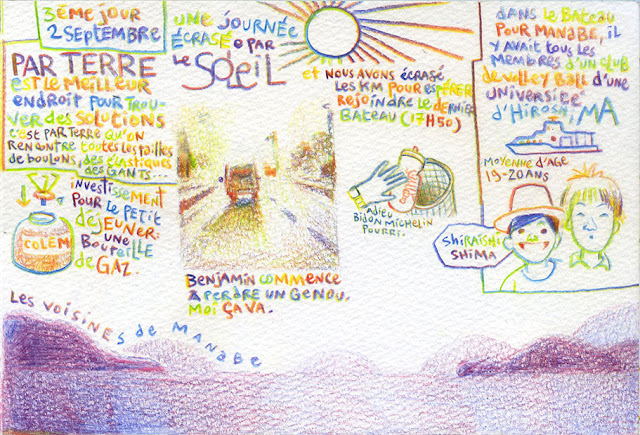 3ÉME JOUR
2 SEPTEMBRE
PAR TERRE
EST LE MEILLEUR
ENDROIT POUR TROU-
VER DES SOLUTIONS
C'EST PAR TERRE QU'ON
RENCONTRE TOUTES LES TAILLES
DE BOULONS, DES ÉLASTIQUES
DES GANTS...
INVESTISSEMENT
POUR LE PETIT
DÉJEUNER:
UNE
BOUTEILLE
DE GAZ.
COLEM
UNE JOURNÉE
ÉCRASÉE PAR
LE SOLEIL
BENJAMIN COMMENCE
A PERDRE UN GENOU.
MOI ÇA VA.
ET NOUS AVONS ÉCRASÉ
LES KM POUR ESPÉRER
REJOINDRE LE DERNIER
BATEAU (17H50)
ADIEU
BIDON MICHELIN
POURRI.
DANS LE BATEAU
POUR MANABE, IL
Y AVAIT TOUS LES
MEMBRES D'UN CLUB
DE VOLLEY BALL D'UNE
UNIVERSITÉ
D'HIROSHIMA
MOYENNE D'AGE
19-20 ANS
SHIRAISHI
SHIMA
LES VOISINES DE MANABE